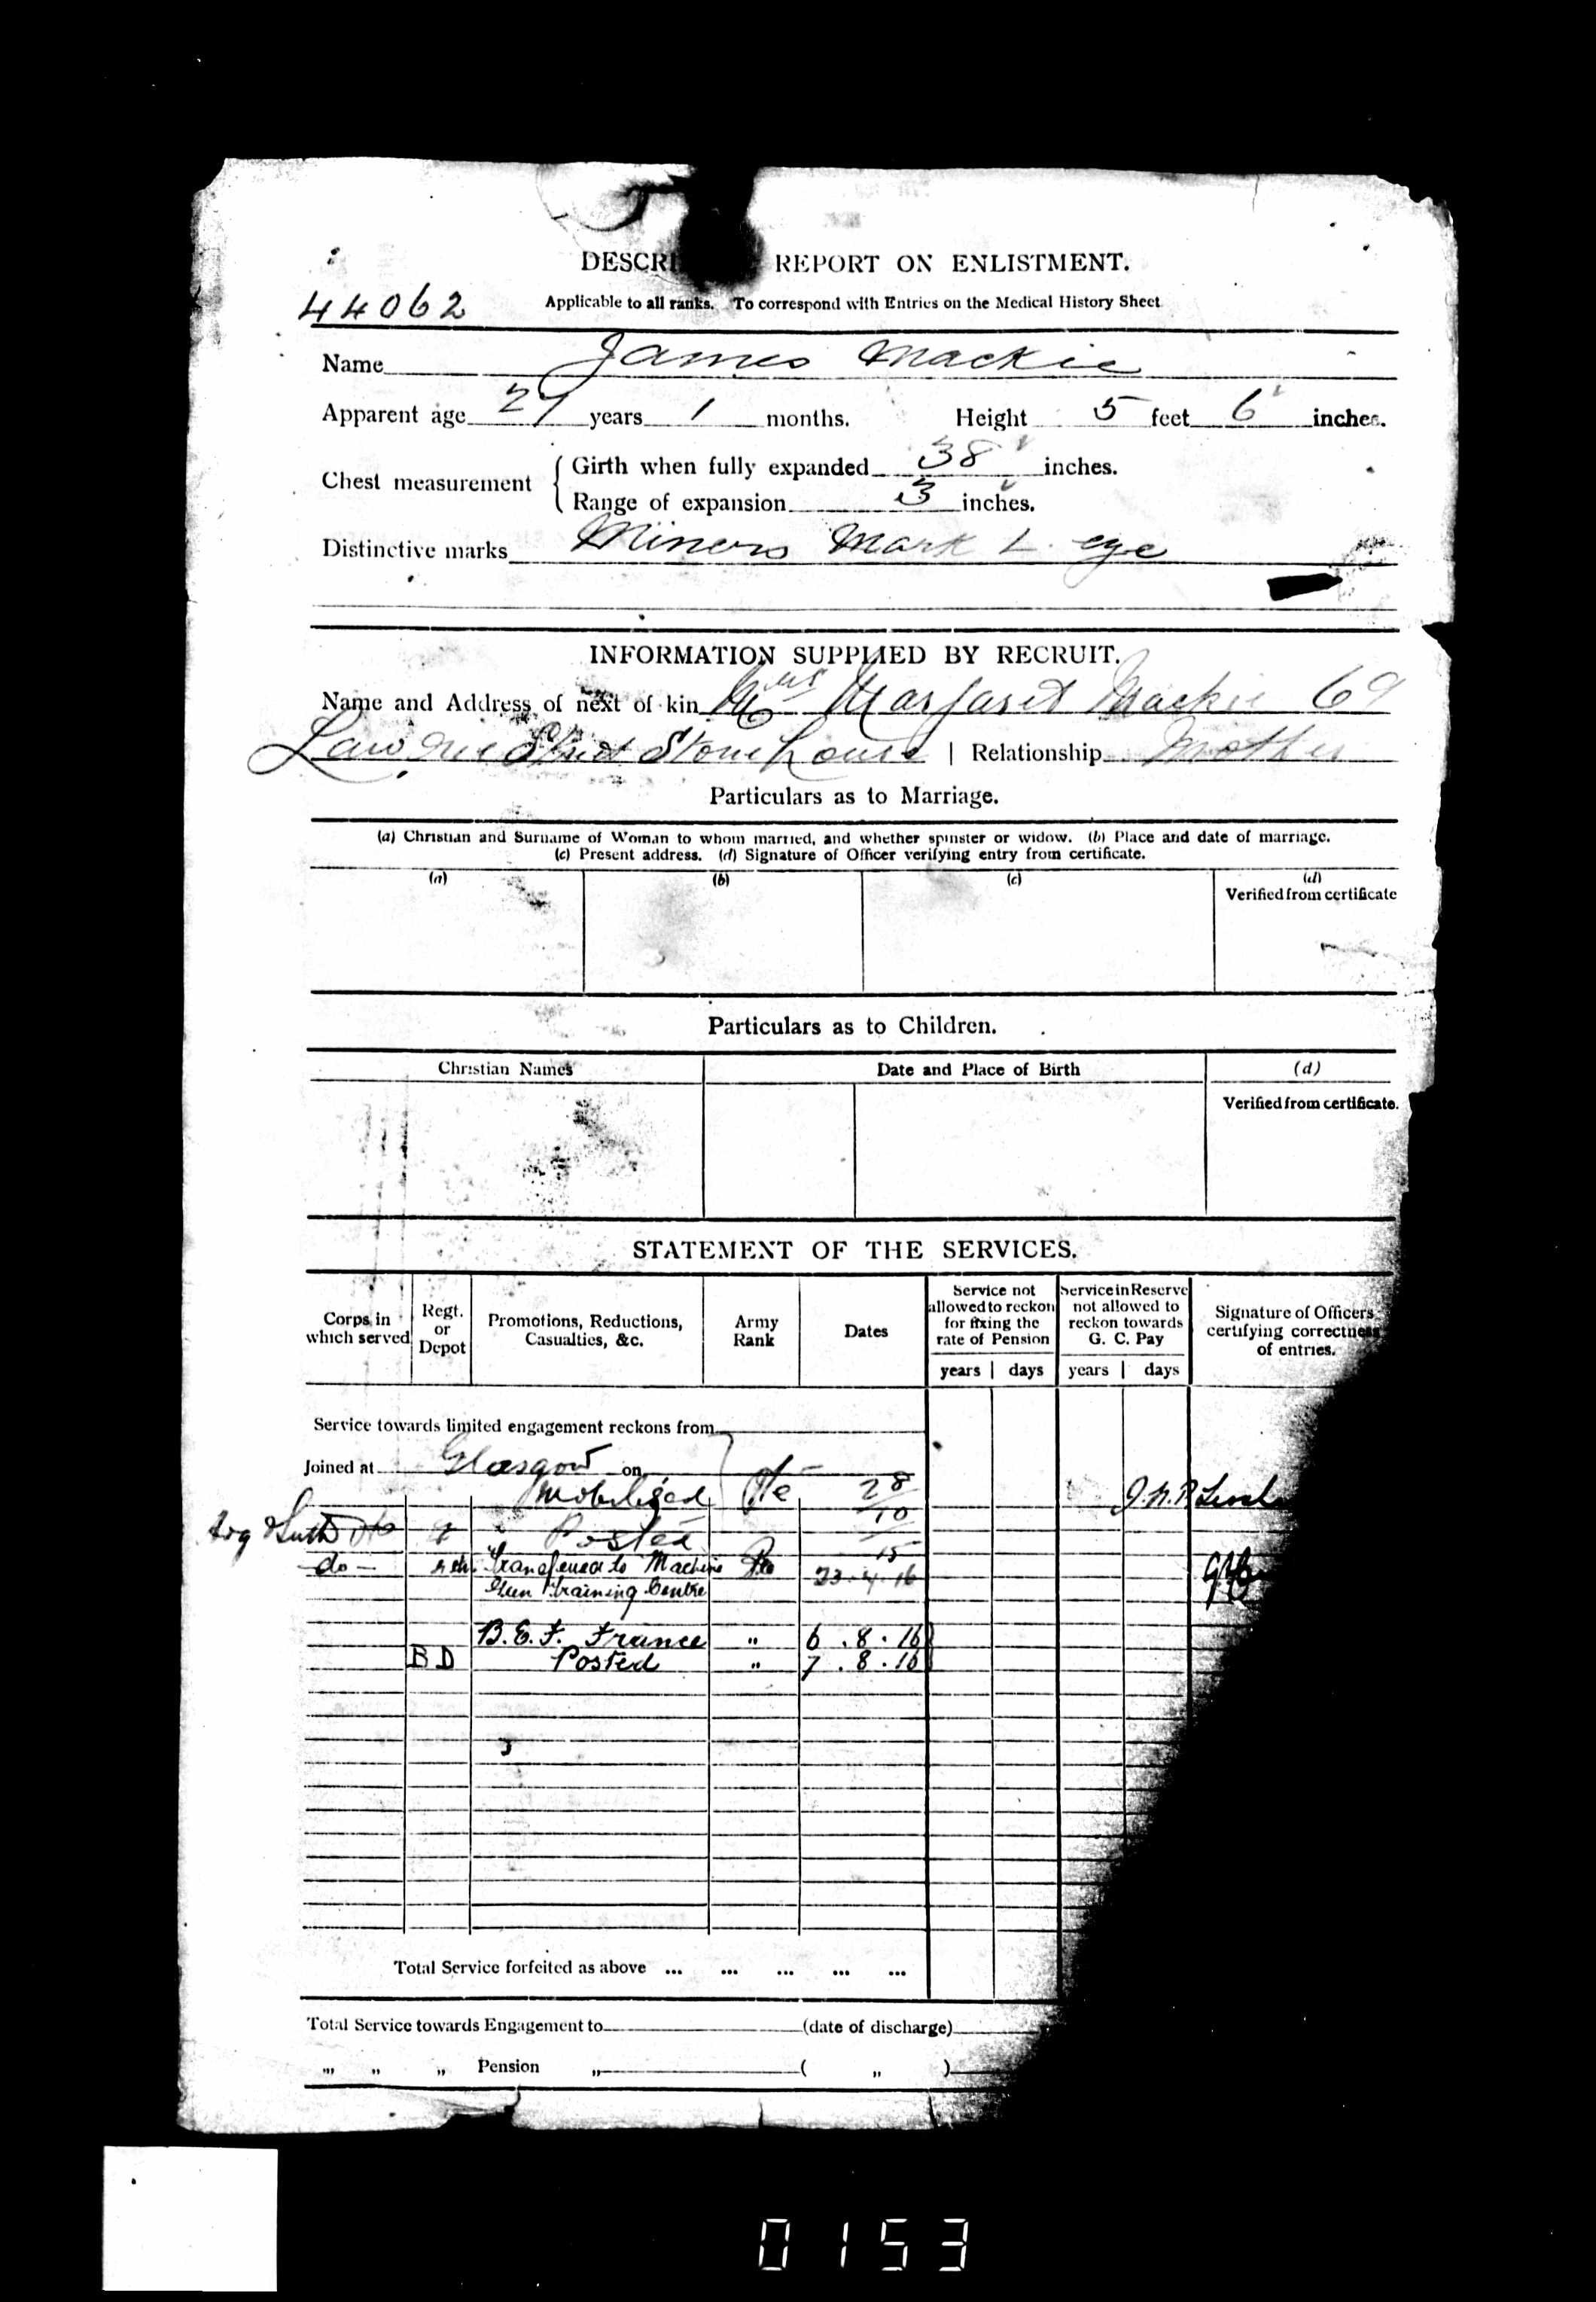 DESCRI REPORT ON ENLISTMENT.
44062
Applicable to all ranks. To correspond with Entries on the Medical History Sheet
Name James Mackie
Apparent age 27 years 1 months. Height 5 feet 6 inches.
Chest measurement { Girth when fully expanded 38 inches.
Range of expansion 3 inches.
Distinctive marks Miners Mark L. eye
INFORMATION SUPPLIED BY RECRUIT.
Name and Address of next of kin Mrs Margaret Mackie 69
Street Stonehouse | Relationship Mother
Particulars as to Marriage.
(a) Christian and Surname of Woman to whom married, and whether spinster or widow. (b) Place and date of marriage.
(c) Present address. (d) Signature of Officer verifying entry from certificate.
(a) (b) (c) (d)
Verified from certificate
Particulars as to Children.
Christian Names Date and Place of Birth (d)
Verified from certificate.
STATEMENT OF THE SERVICES.
Corps in which served Regt. or Depot Promotions, Reductions, Casualties, &c. Army Rank Dates Service not allowed to reckon for fixing the rate of Pension Service in Reserve not allowed to reckon towards G. C. Pay Signature of Officers certifying correctness of entries.
years days years days
Service towards limited engagement reckons from
Joined at Glasgow on
Mobilised Pte 28
10
Arg & Suth Posted 15
do Transferred to Machine Pte 23.4.16
Gun Training Centre
B.E.F. France " 6.8.16
BD Posted " 7.8.16
Total Service forfeited as above ... ... ... ... ...
Total Service towards Engagement to (date of discharge)
„ „ „ Pension „ ( „ )
0153